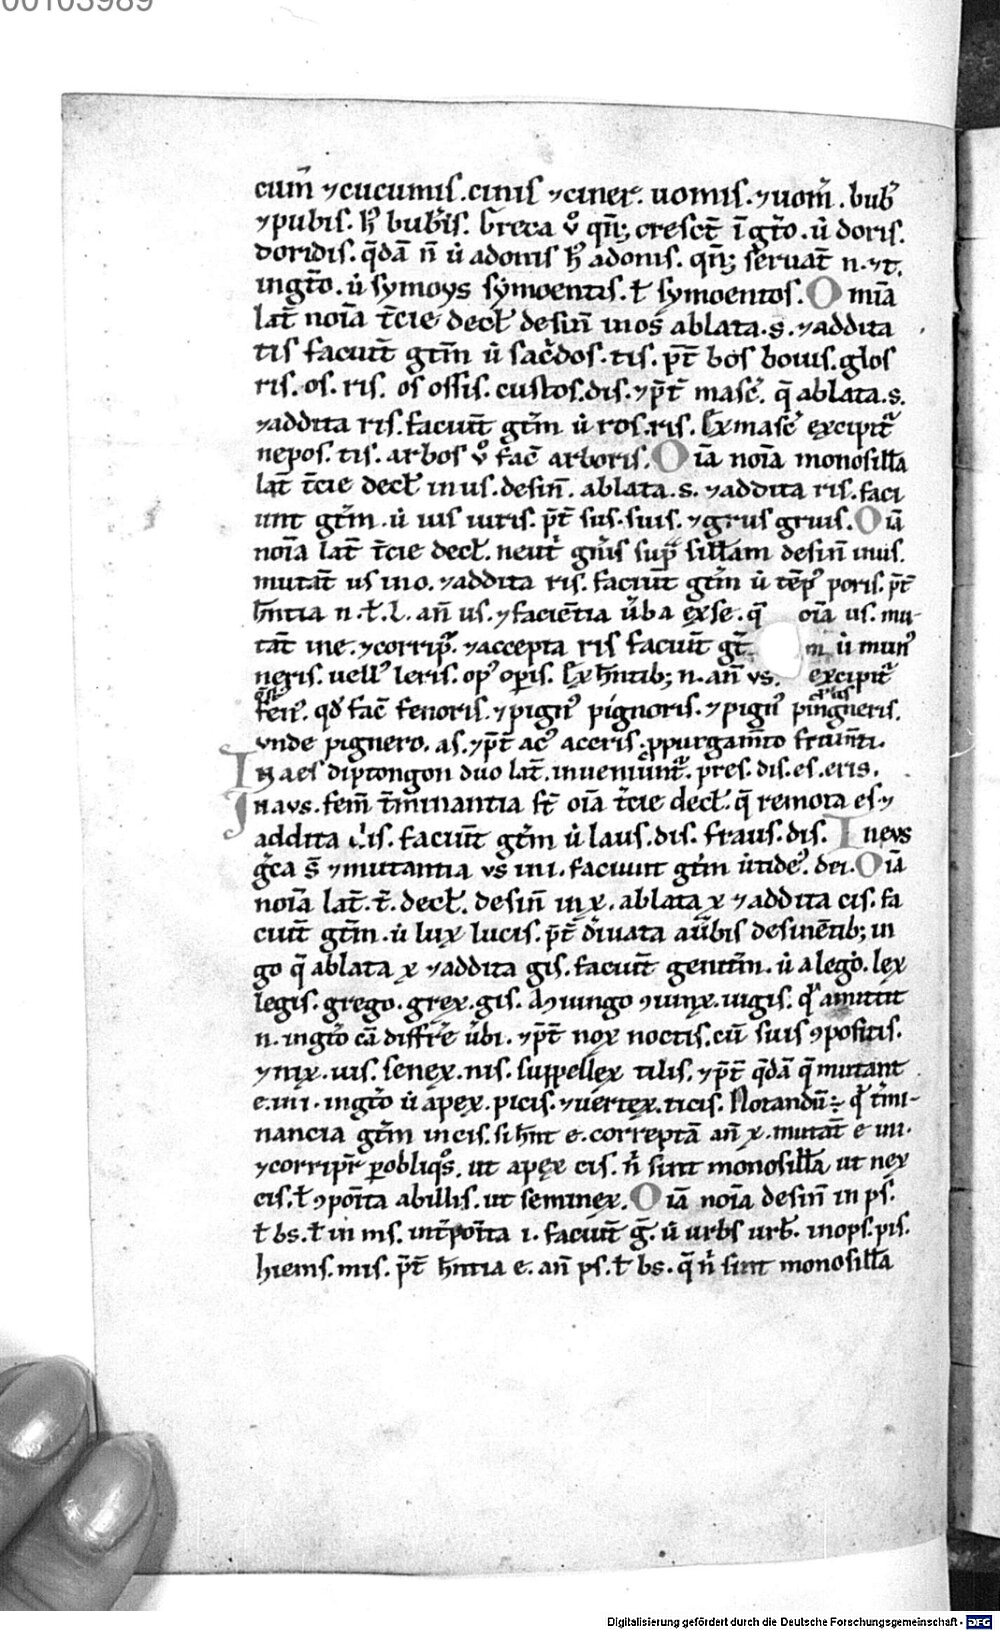 00103989
cum̄ ⁊cucumis. cinis ⁊ciner. uomis. ⁊uom̄. bub̓
⁊pubis. h̄ bub̓is. Greca v̓ qn̄; cresct̄ ī gt̄o. u̇ doris.
doridis. q̄dā n̄ u̇ adonis h̄ adonis. qn̄; seruāt n. ⁊t.
ingt̄o. u̇ symoys symoentis. ł symoentos. O mīa
lat̄ noīa t̄cie decł desin̄ inos ablata. s. ⁊addita
tis faciūt gt̄m u̇ sac̄dos. tis. p̄t bos bouis. glos
ris. os. ris. os ossis. custos. dis. ⁊p̄t masc̓. q̄ ablata. s.
⁊addita ris. faciūt gt̄m u̇ ros. ris. Ex masc̓ excipit᷑
nepos. tis. arbos v̓ fac̄ arboris. O īa noīa monosilła
lat̄ t̄cie decł in us. desin̄. ablata. s. ⁊addita ris. faci
unt gt̄m. u̇ ius iuris. p̄t sus. suis. ⁊grus gruis. O īa
noīa lat̄ t̄cie decł. neut̓ gn̄is sup̄ siłłam desin̄ inus.
mutāt us ino. ⁊addita ris. faciūt gt̄m u̇ tēp᷒ poris. p̄t
hn̄tia n. ł. l. an̄ us. ⁊faciētia u̓ba exse. q̄ oīa us. mu-
tāt ine. ⁊corrip̄. ⁊accepta ris faciūt gt̄ m̄ u̇ mun᷒
neris. uell᷒ leris. op᷒ op̄is. Ex hn̄tib; n. an̄ vs. excipit᷑
fen᷒. qd̓ fac̄ fenoris. ⁊pign᷒ pignoris. ⁊pign᷒ pingneris.
vnde pignero. as. ⁊p̄t ac᷒ aceris. ꝓpurgam̄to frum̄ti.
In aes diptongon duo lat̄. inueniūnt᷑. pres. dis. es. eris.
In aus. fem̄ t̄minantia st̄ oīa t̄cie decł. q̄ remota es ⁊
addita dis. faciūt gt̄m u̇ laus. dis. fraus. dis. I neus
g̓ca s̄ ⁊mutantia us in i. faciunt gt̄m u̇tide᷒. dei. O īa
noīa lat̄. t̄. decł. desin̄ in x. ablata x ⁊addita cis. fa
ciūt gt̄m. u̇ lux lucis. p̄t d̓iuata au̓bis desinētib; in
go q̄ ablata x ⁊addita gis. faciūt genit̄m. u̇ a lego. lex
legis. grego. grex. gis. A iungo ꝯiunx. iugis. q̓ amittit
n. ingt̄o cā diffrē u̓bi. ⁊p̄t nox noctis. cū suis ꝯpositis.
⁊nix. uis. senex. nis. suppellex tilis. ⁊p̄t q̄dā q̄ mutant
e. in i. ingt̄o u̇ apex. picis. ⁊uertex. ticis. Notandū ÷ q̓ t̓mi-
nancia gt̄m incis. si hn̄t e. correptā an̄ x. mutāt e in i.
⁊corripr̄ p̱ obliq᷒s. ut apex cis. n̓ sunt monosilła ut nex
cis. ł ꝯpoīta abillis. ut seminex. O īa noīa desin̄ in ps.
ł bs. ł in ms. int̓poīta i. faciūt ḡ. u̇ urbs urb̄. inops. pis.
hiems. mis. p̄t hn̄tia e. an̄ ps. ł bs. q̄ n̓ sunt monosilła
Digitalisierung gefördert durch die Deutsche Forschungsgemeinschaft - DFG